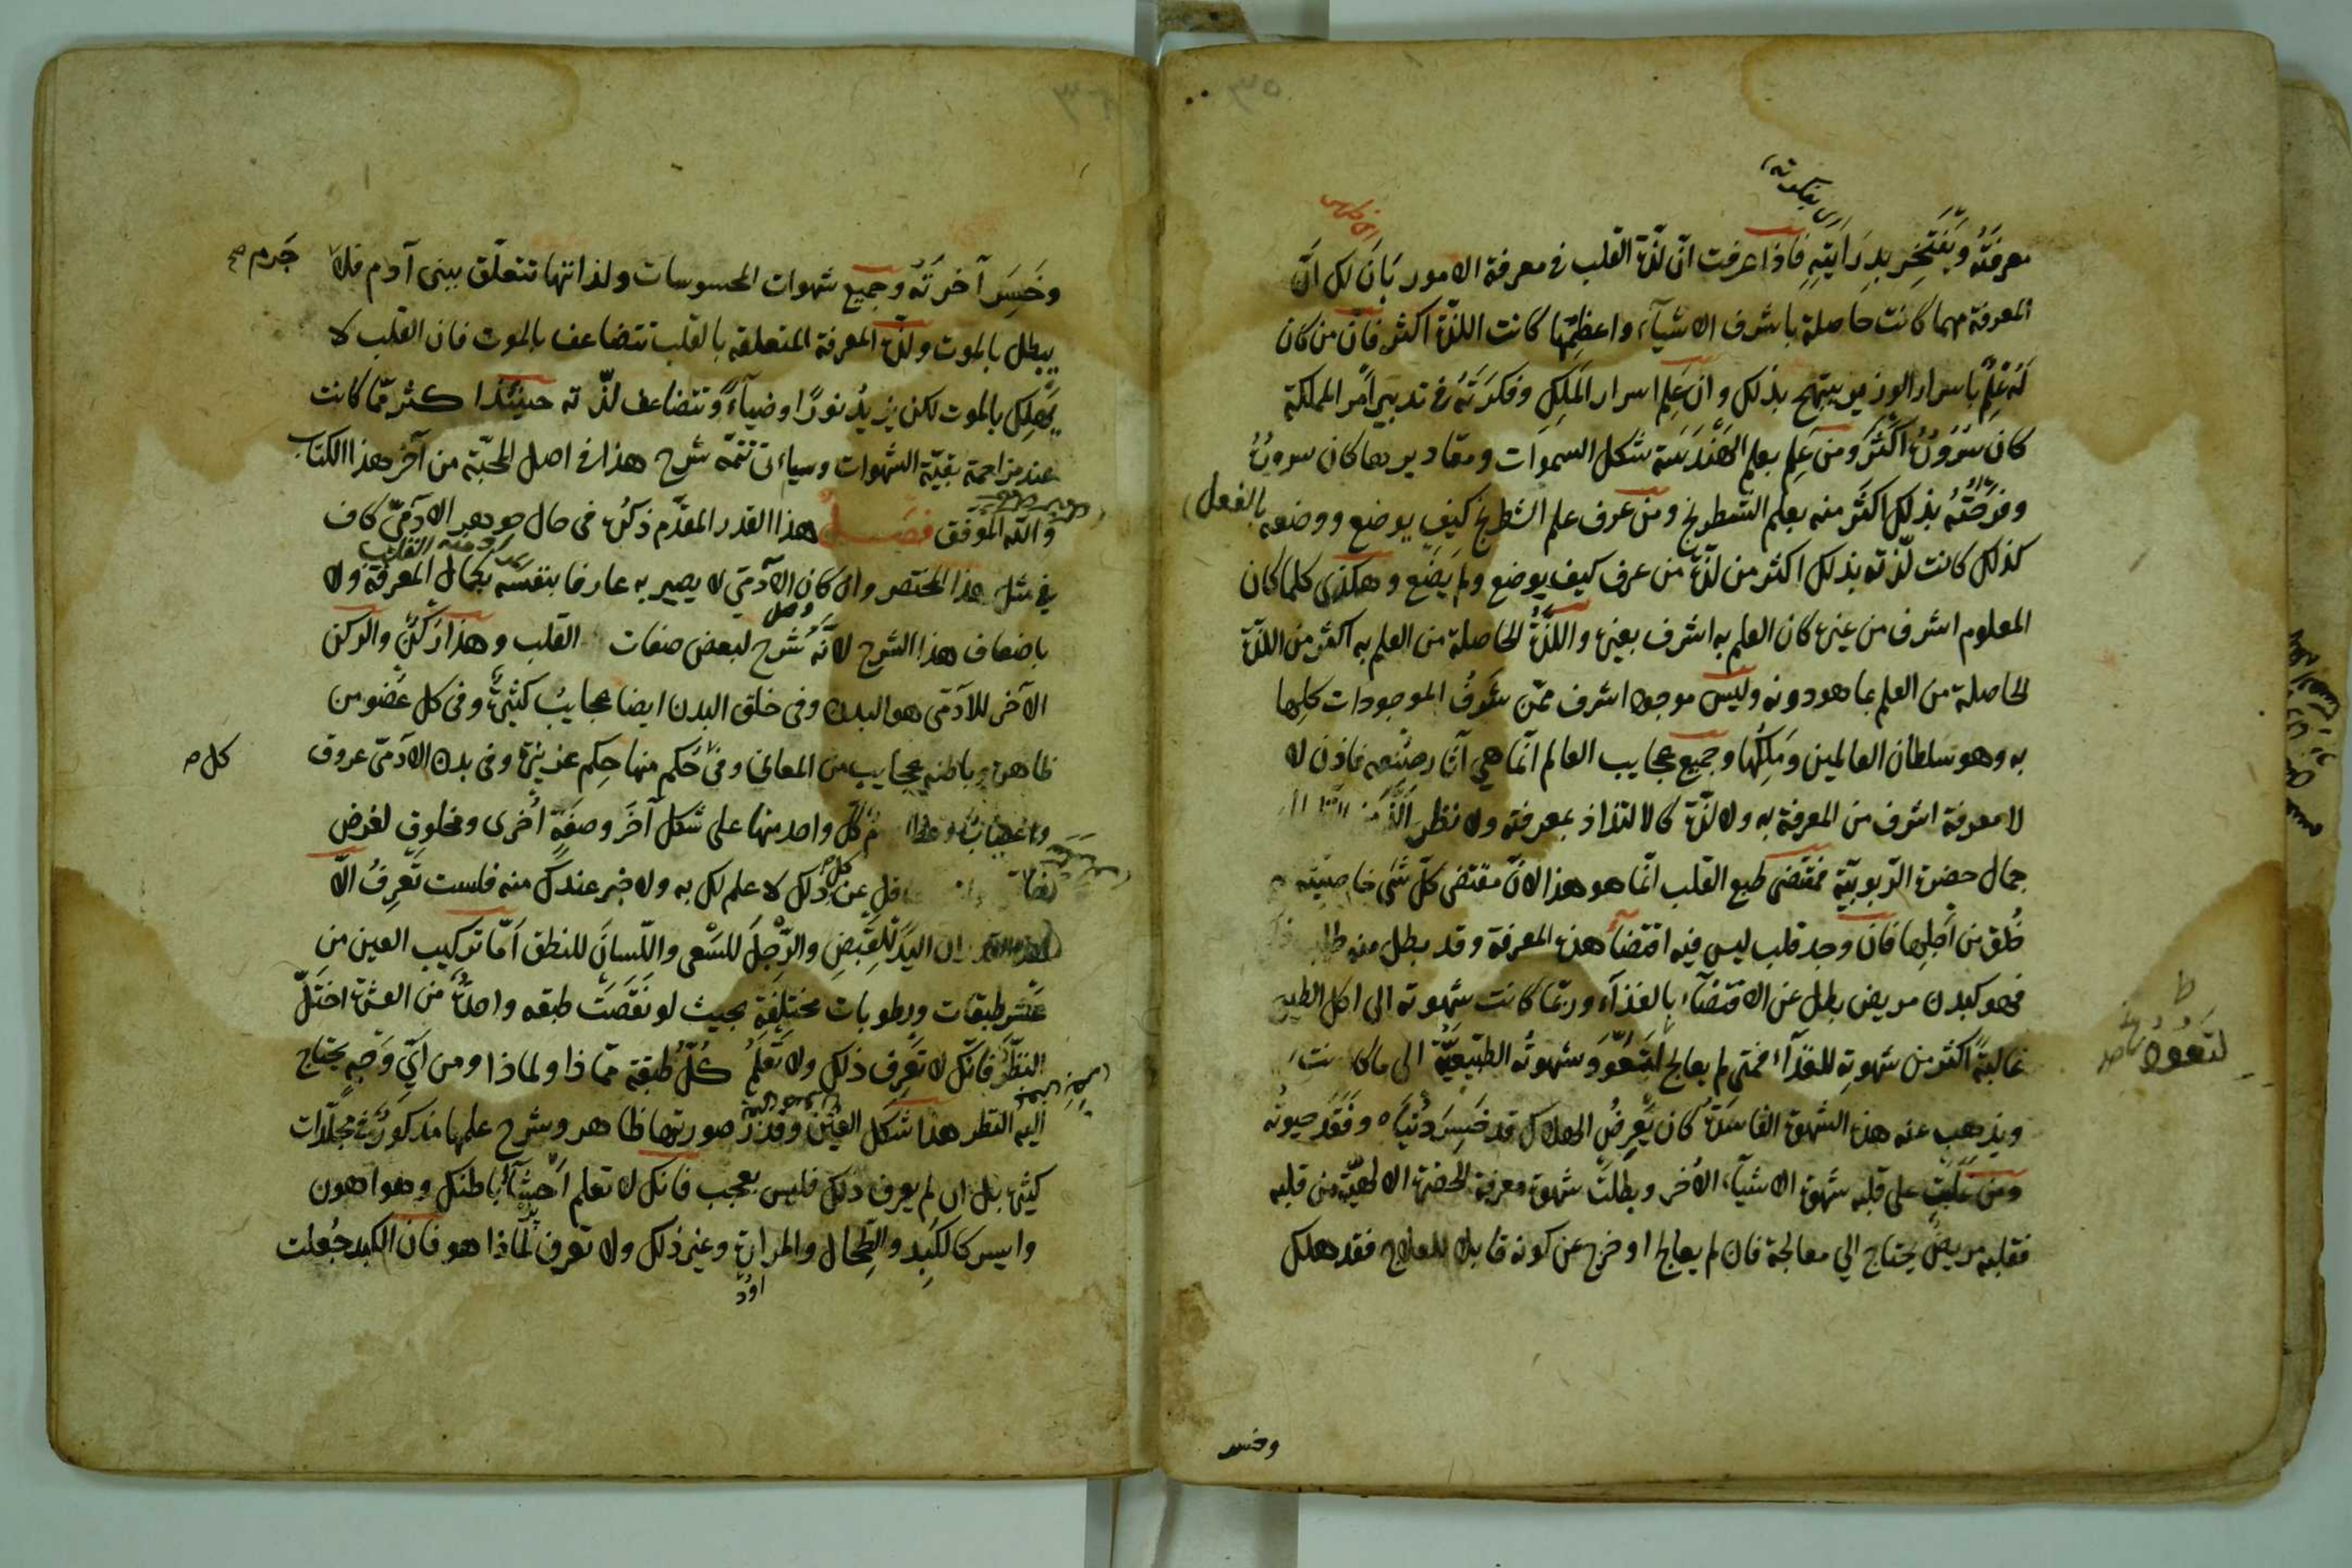 معرفته ويفتخر بدرايته فاذا عرفت ان لذة القلب في معرفة الامور بان لك ان
المعرفة مهما كانت حاصلة باشرف الاشياء واعظمها كانت اللذة اكثر فان من كان
له علم باسرار الوزير يبتهج بذلك وان علم اسرار الملك وفكرته في تدبير امر المملكة
كان سروره اكثر ومن علم بعلم الهندسة شكل السموات ومقاديرها كان سروره
وفرحته بذلك اكثر منه بعلم الشطرنج ومن عرف علم الشطرنج كيف يوضع ووضعه بالفعل
كذلك كانت لذته بذلك اكثر من لذة من عرف كيف يوضع ولم يضع وهكذى كلما كان
المعلوم اشرف من غيره كان العلم به اشرف بعينه واللذة الحاصلة من العلم به اكثر من اللذة
الحاصلة من العلم بما هو دونه وليس موجود اشرف ممن شرف الموجودات كلها
به وهو سلطان العالمين وملكها وجميع عجايب العالم انما هي آثار صنعه فاذن لا
لا معرفة اشرف من المعرفة به ولا لذة كالالتذاذ بمعرفته ولا نظر الذ من
جمال حضرة الربوبية فمقتضى طبع القلب انما هو هذا لان مقتضى كل شيء خاصيته
خلق من اجلها فان وجد قلب ليس فيه اقتضاء هذه المعرفة وقد بطل منه طلب
فهو كبدن مريض بطل عن الاقتضاء بالغذاء وربما كانت شهوته الى اكل الطين
غالبة اكثر من شهوته للغذاء فمتى لم يعالج لتعود شهوته الطبيعية الى ما كانت
لتعود
ويذهب عنه هذه الشهوة الفاسدة كان يعرض الهلاك قد خسر دنياه وفقد حيوته
ومن غلبت على قلبه شهوة الاشياء الأخر وبطلت شهوة معرفة الحضرة الالهية من قلبه
فقلبه مريض يحتاج الي معالجة فان لم يعالج او خرج عن كونه قابلا للعلاج فقد هلك
وخسر
وخسر آخرته وجميع شهوات المحسوسات ولذاتها تتعلق ببني آدم فلا جرم صح
يبطل بالموت ولذة المعرفة المتعلقة بالقلب تتضاعف بالموت فان القلب لا
يهلك بالموت لكن يزيد نورا وضياء وتتضاعف لذته حينئذ اكثر مما كانت
عند مزاحمة بقية الشهوات وسياتى تتمة شرح هذا في اصل المحبة من آخر هذا الكتاب
والله الموفق فصل هذا القدر المقدم ذكره في حال جوهر الآدمي كاف
في مثل هذا المختصر وان كان الآدمي لا يصير به عارفا بنفسه بكمال المعرفة ولا
باضعاف هذا الشرح لانه شرح لبعض صفات القلب وهذا ركن والركن
الآخر للآدمي هو البدن وفي خلق البدن ايضا عجايب كثيرة وفي كل عضو من
ظاهره وباطنه عجايب من المعاني وفي حكم منها حكم عزيزة وفي بدن الآدمي عروق
كل ص
واعصاب وعظام كل واحد منها على شكل آخر وصفة أخرى ومخلوق لغرض
غافل عن ذلك لا علم لك به ولا خبر عندك منه فلست تعرف الا
ان اليد للقبض والرجل للسعي واللسان للنطق اما تركيب العين من
عشر طبقات ورطوبات مختلفة بحيث لو نقصت طبقه واحدة من العشرة اختل
النظر فانك لا تعرف ذلك ولا تعلم كل طبقة مماذا ولماذا ومن اي وجه يحتاج
اليه النظر هذا شكل العين وقدر صورتها ظاهر وشرح علمها مذكور في مجلدات
كثيرة بل ان لم يعرف ذلك فليس بعجب فانك لا تعلم احشاء باطنك وهو اهون
وايسر كالكبد والطحال والمرارة وغير ذلك ولا تعرف لماذا هو فان الكبد جعلت